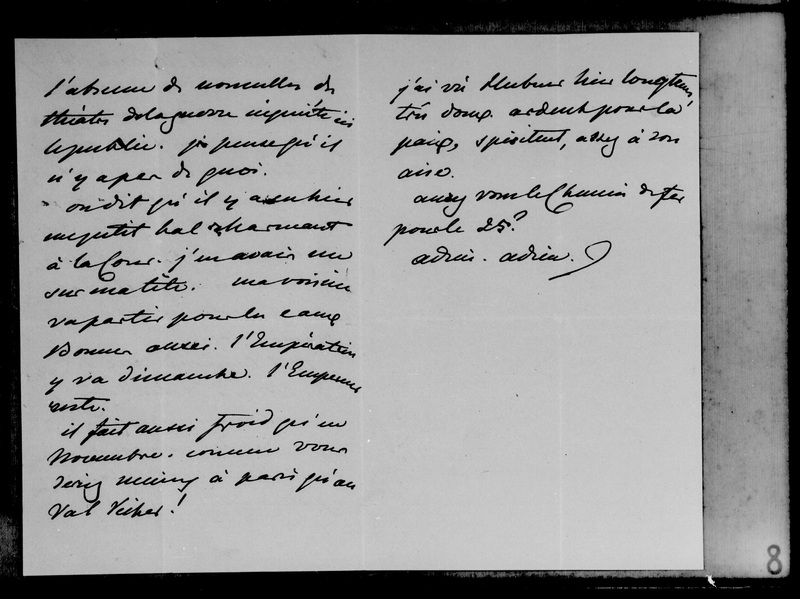 l'absence de nouvelles des
théâtres de la guerre inquiète ici
le public. je pense qu'il
n'y a pas de quoi.
on dit qu'il y a eu hier
un petit bal charmant
à la Cour. j'en avais un
sur ma tête. ma voisine
va partir pour les eaux
Bonnes aussi. l'Impératrice
y va dimanche. l'Empereur
reste.
il fait aussi froid qu'en
Novembre. comme vous
seriez mieux à paris qu'au
Val Richer!
j'ai vu Hubner hier longtems,
très doux. ardent pour la
paix, spirituel, assez à son
aise.
aurez vous le Chemin de fer
pour le 25?
adieu. adieu.
8